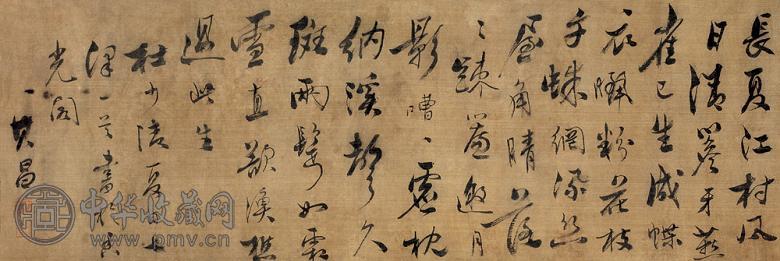 長夏江村風
日清簷牙燕
雀已生成蝶
衣曬粉花枝
午蛛網添絲
屋角晴落
〻疎簾邀月
影嘈〻虛枕
納溪聲久
斑兩鬢如霜
雪直欲漁樵
過此生
杜少陵夏日
一首書
其昌
中华收藏网
www.pmv.cn